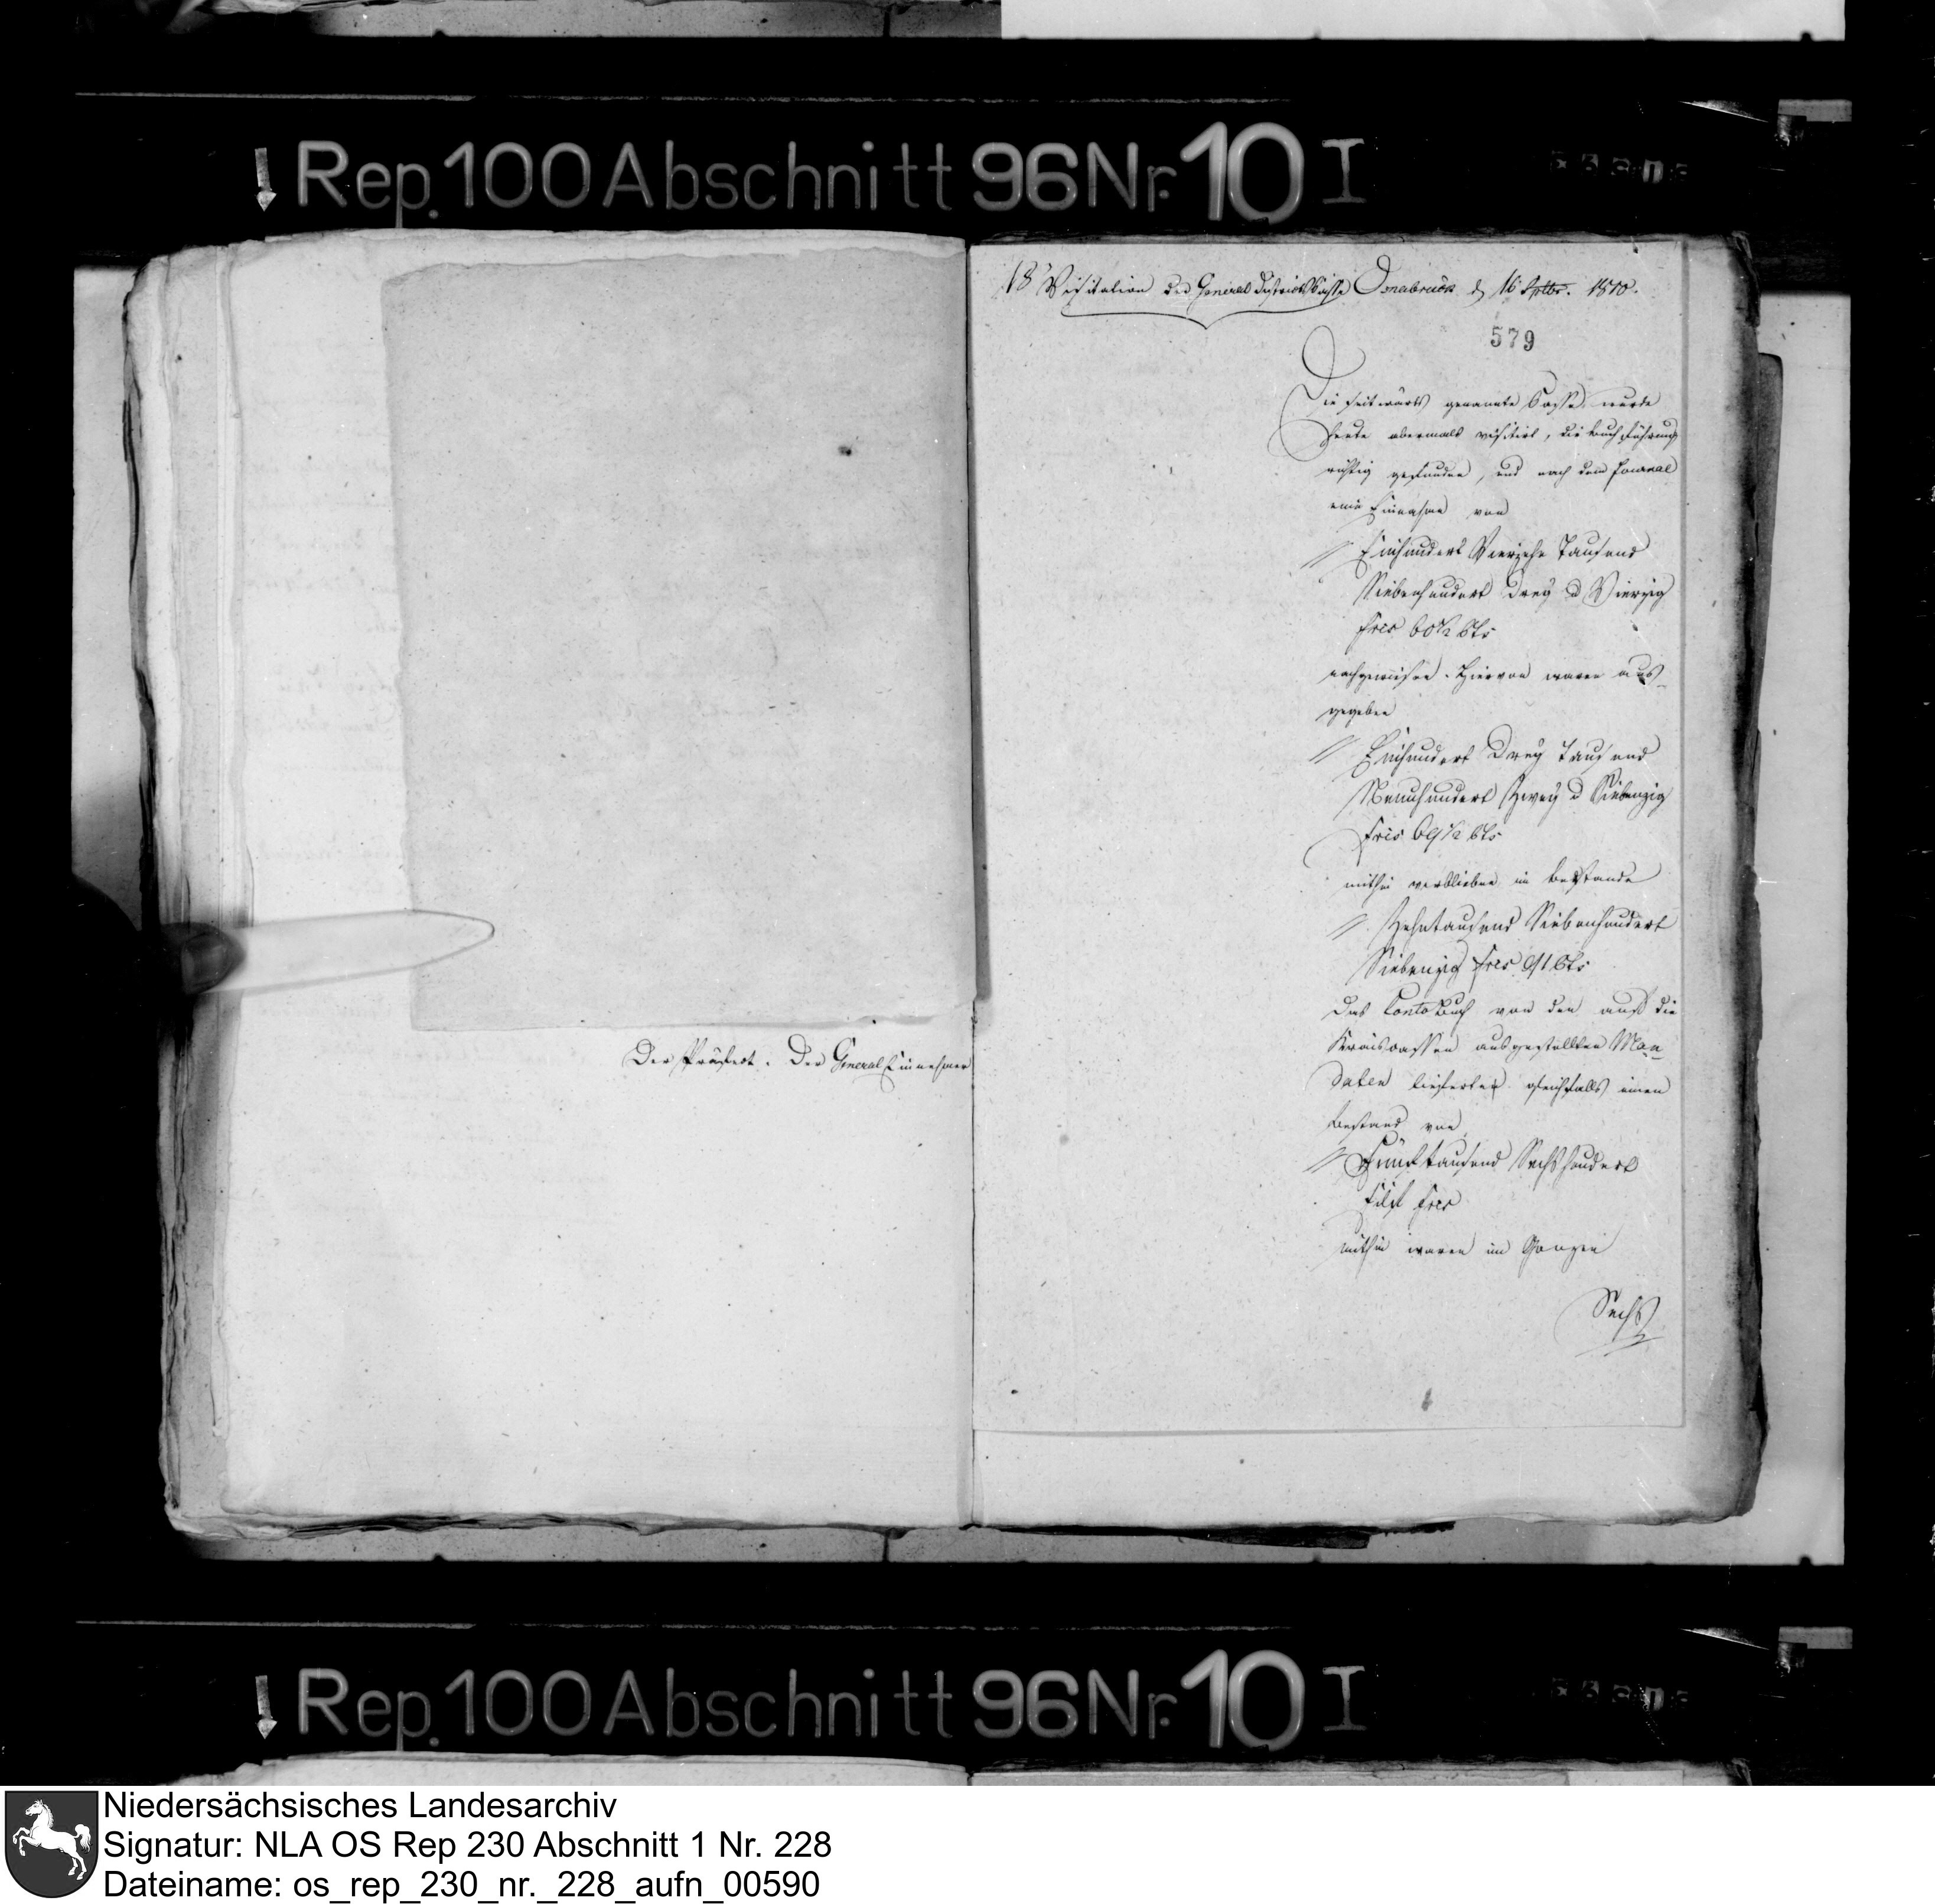 Rep. 100 Abschnitt 96 Nr. 10 I
18 Visitation der General Districts Casse Osnabrück d 16 Septbr. 1810.
579
Die seitwärts genannte Casse wurde
heute abermals visitirt, die Buchführung
richtig gefunden, und nach dem Journal
eine Einnahme von
// Einhundert Vierzehn Tausend
Siebenhundert Drey u Vierzig
Frcs 60½ Cts
nachgewiesen. Hiervon waren aus-
gegeben
// Einhundert Drey Tausend
Neunhundert Zwey u Siebenzig
Frcs 69½ Cts
mithin verblieben im Bestande
// Zehntausend Siebenhundert
Siebenzig Frcs 91 Cts
Das Conto Buch von den auf die
Kreiscassen ausgestellten Man-
daten lieferte gleichfalls einen
Bestand von
// Fünftausend Sechshundert
Eilf Frcs
mithin waren im Ganzen
Sechs
Der Präfect. Der General Einnehmer
Rep. 100 Abschnitt 96 Nr. 10 I
Niedersächsisches Landesarchiv
Signatur: NLA OS Rep 230 Abschnitt 1 Nr. 228
Dateiname: os_rep_230_nr._228_aufn_00590